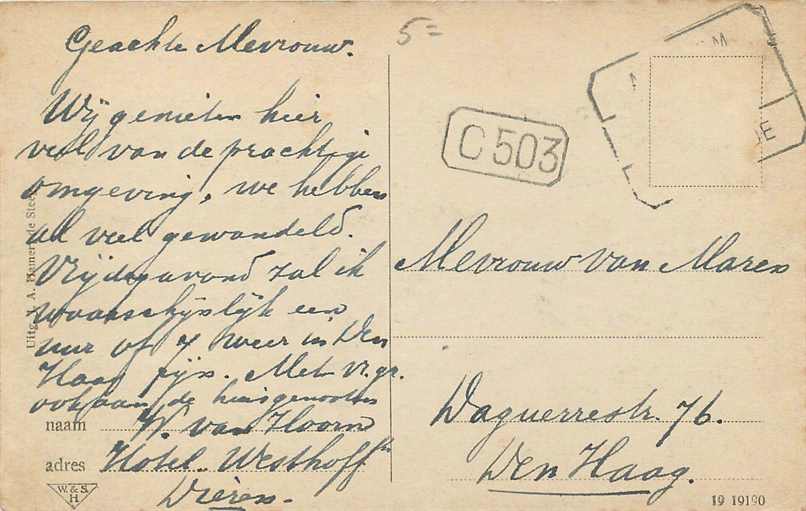 Geachte Mevrouw.
Wij genieten hier
veel van de prachtige
omgeving, we hebben
al veel gewandeld.
Vrijdagavond zal ik
waarschijnlijk een
uur of 7 weer in Den
Haag zijn. Met vr. gr.
ook aan de huisgenooten
naam W. van Hoorn
adres Hotel Westhoff
Dieren.
Uitg. J. A. Hamer, de Steeg
W. & S.
H
5=
C 503
M
E
Mevrouw van Maren
Daguerrestr. 76.
Den Haag.
19 19190